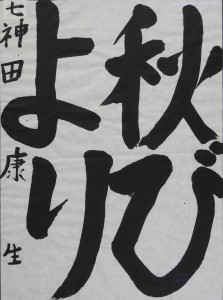 秋び
より
七神田康生